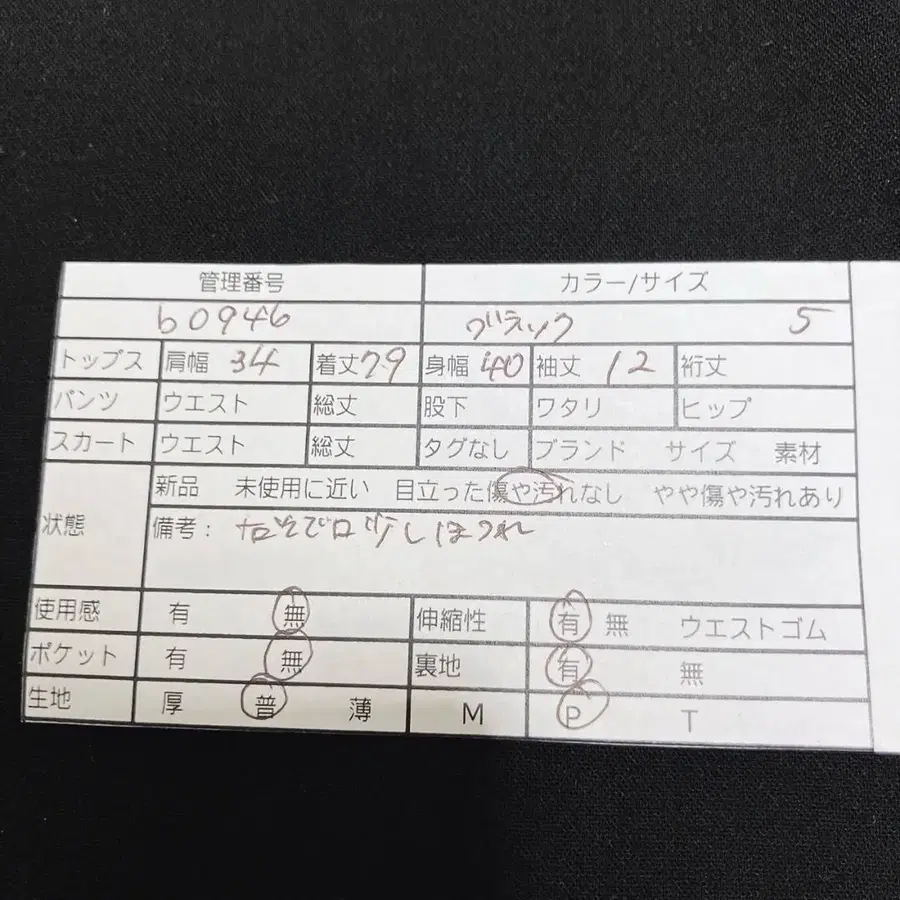 管理番号 カラー/サイズ
b0946 ブラック 5
トップス 肩幅 34 着丈 79 身幅 40 袖丈 12 裄丈
パンツ ウエスト 総丈 股下 ワタリ ヒップ
スカート ウエスト 総丈 タグなし ブランド サイズ 素材
状態 新品 未使用に近い 目立った傷や汚れなし やや傷や汚れあり
備考: 少しほつれ
使用感 有 無 伸縮性 有 無 ウエストゴム
ポケット 有 無 裏地 有 無
生地 厚 普 薄 M P T